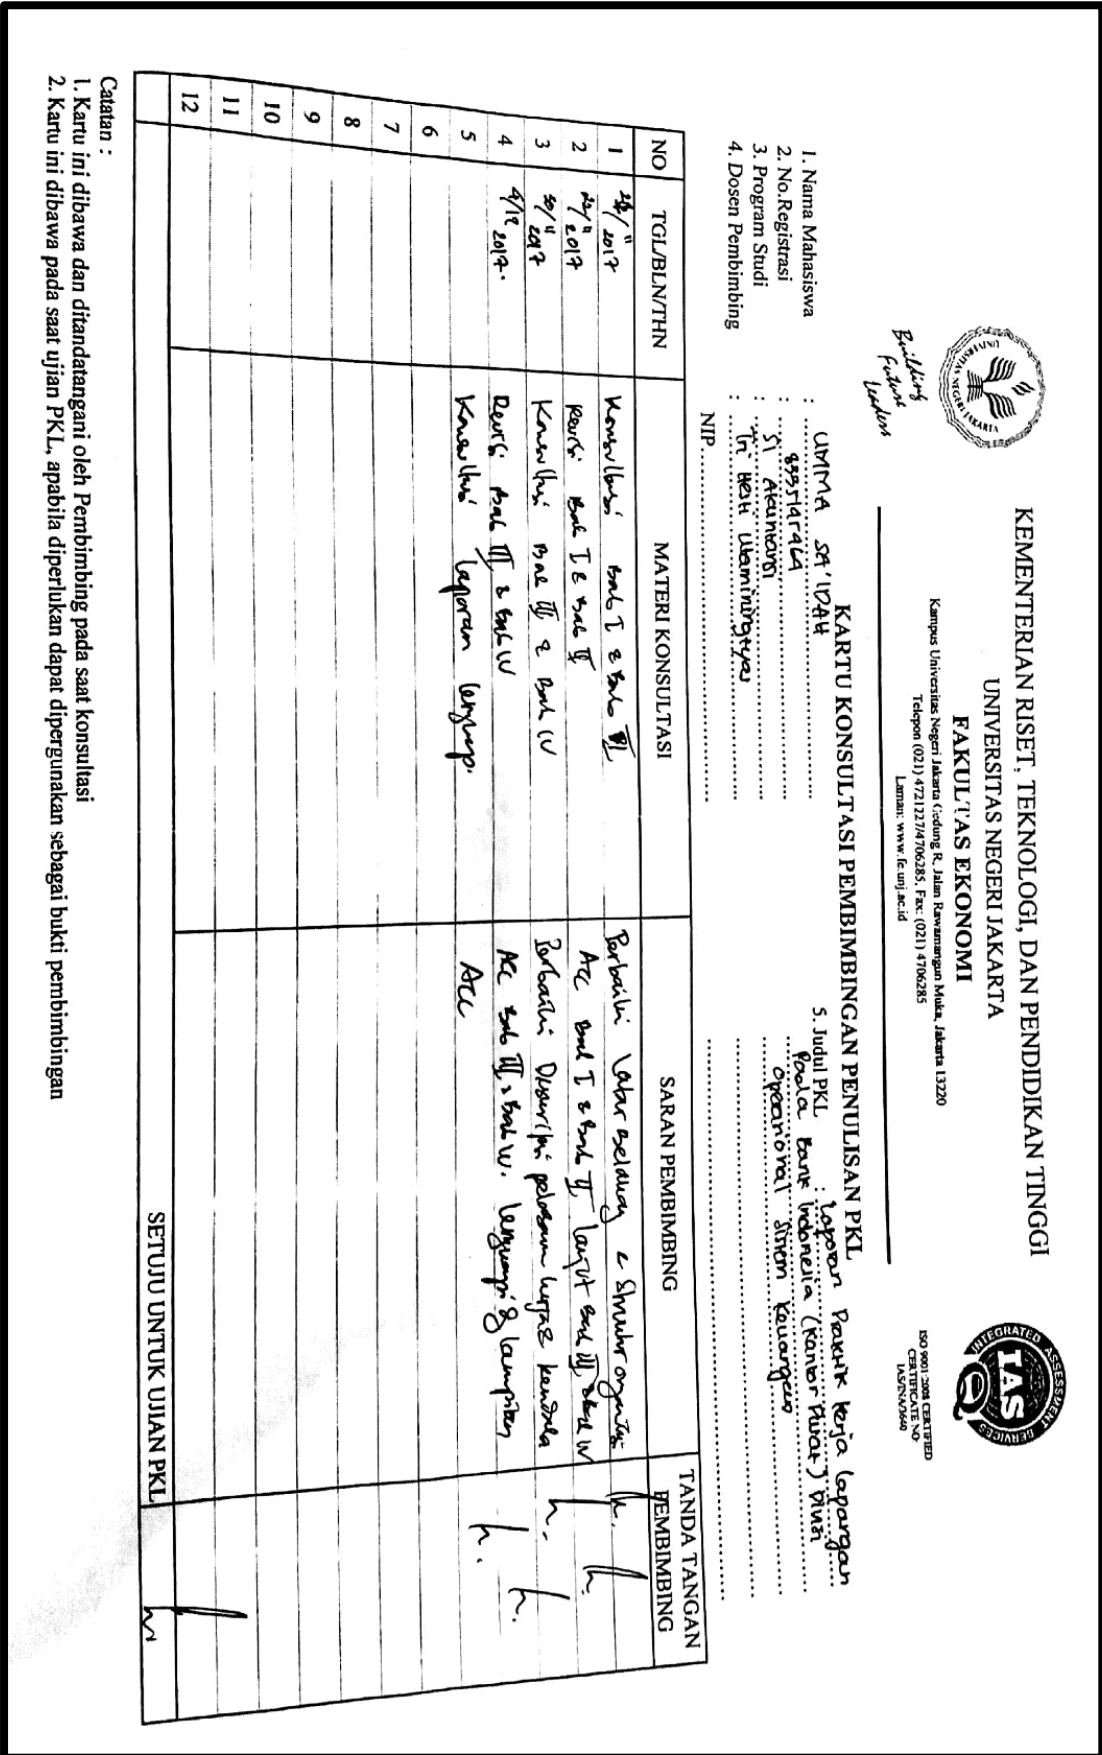 KEMENTERIAN RISET, TEKNOLOGI, DAN PENDIDIKAN TINGGI
UNIVERSITAS NEGERI JAKARTA
FAKULTAS EKONOMI
Kampus Universitas Negeri Jakarta Gedung R, Jalan Rawamangun Muka, Jakarta 13220
Telepon (021) 4721227/4706285, Fax: (021) 4706285
Laman: www.fe.unj.ac.id
UNIVERSITAS NEGERI JAKARTA
Building
Future
Leaders
INTEGRATED ASSESSMENT SERVICES
IAS
ISO 9001:2008 CERTIFIED
CERTIFICATE NO:
IAS/INA/3640
KARTU KONSULTASI PEMBIMBINGAN PENULISAN PKL
1. Nama Mahasiswa : UMMA SA'IDAH
2. No.Registrasi : 8335145464
3. Program Studi : S1 Akuntansi
4. Dosen Pembimbing : Tri Hesti Utaminingtyas
NIP.
5. Judul PKL : Laporan Praktik Kerja Lapangan
Pada Bank Indonesia (Kantor Pusat) Divisi
Operasional Sistem Keuangan
NO TGL/BLN/THN MATERI KONSULTASI SARAN PEMBIMBING TANDA TANGAN PEMBIMBING
1 /11 2017 Konsultasi Bab I & Bab II Perbaiki Latar Belakang & Struktur organisasi
2 /11 2017 Revisi Bab I & Bab II Acc Bab I & Bab II lanjut Bab III & Bab IV
3 30/11 2017 Konsultasi Bab III & Bab IV Perbaiki Deskripsi pelaksanaan kerja & kendala
4 4/12 2017. Revisi Bab III & Bab IV Acc Bab III & Bab IV. lengkapi lampiran
5 Konsultasi laporan lengkap. Acc
6
7
8
9
10
11
12
SETUJU UNTUK UJIAN PKL
Catatan :
1. Kartu ini dibawa dan ditandatangani oleh Pembimbing pada saat konsultasi
2. Kartu ini dibawa pada saat ujian PKL, apabila diperlukan dapat dipergunakan sebagai bukti pembimbingan